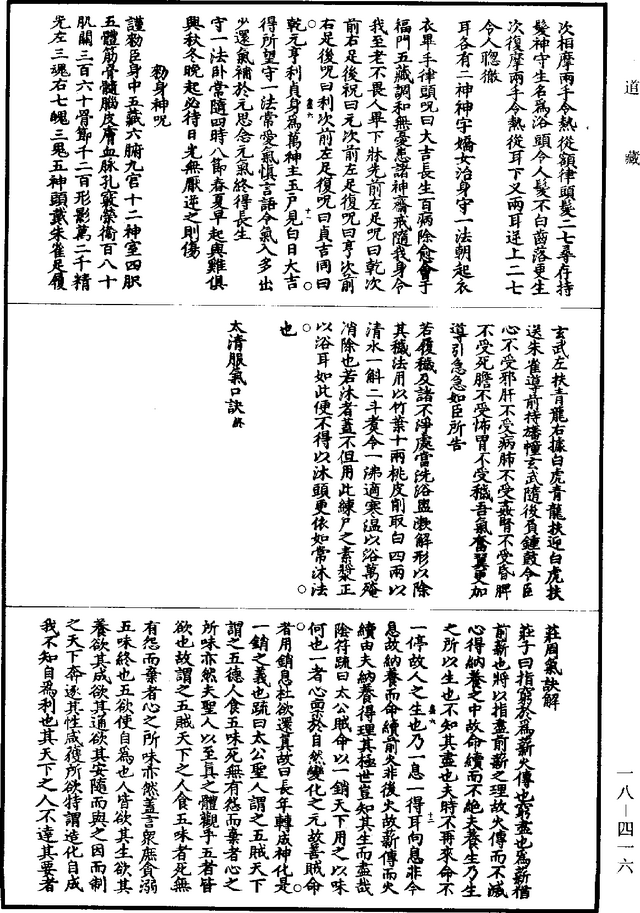 道藏
次相摩兩手令熱從額律頭髮二七尋存持
髮神守生名為浴頭令人髮不白齒落更生
次復摩兩手令熱從耳下又兩耳逆上二七
令人聰徹
耳各有二神神字嬌女治身守一法朝起衣
衣畢手律頭呪曰大吉長生百病除愈會于
福門五藏調和無憂患諸神齋戒隨我身令
我至老不畏人畢下牀先前左足呪曰乾次
前右足後祝曰元次前左足復呪曰亨次前
右足後呪曰利次前左足復呪曰貞吉同曰
乾元亨利貞身為萬神主玉戸見白日大吉
得所望守一法常愛氣慎言語令氣入多出
少還氣補於元思念元氣終得長生
守一法卧常隨四時八節春夏早起與雞俱
興秋冬晚起必待日光無厭逆之則傷
勑身神呪
謹勑臣身中五藏六腑九官十二神室四肢
五體筋骨髓腦皮膚血脉孔竅榮衛百八十
肌關三百六十骨節千二百形影萬二千精
光左三魂右七魄三鬼五神頭戴朱雀足履
玄武左扶青龍右據白虎青龍扶迎白虎扶
送朱雀導前持旛幢玄武隨後負鍾鼓令臣
心不受邪肝不受病肺不受姦腎不受昏脾
不受死膽不受怖胃不受穢吾氣奮翼更加
導引急急如臣所告
若履穢及諸不淨處當洗浴盥漱解形以除
其穢法用以竹葉十兩桃皮削取白四兩以
清水一斛二斗煑令一沸適寒温以浴萬殗
消除也若沐者蓋不但用此練尸之素漿正
以浴耳如此便不得以沐頭更依如常沐法
也
太清服氣口訣終
莊周氣訣解
莊子曰指窮於為薪火傳也窮盡也為薪猶
前薪也將以指盡前薪之理故火傳而不滅
心得納養之中故命續而不絕夫養生乃生
之所以生也不知其盡也夫時不再來命不
一停故人之生也乃一息一得耳向息非今
息故納養而命續前火非後火故薪傳而火
續由夫納養得理其極世豈知其生而盡哉
陰符疏曰太公賊命以一銷天下用之以味
何也一者心要於自然變化之元故善賊命
者用銷息杜欲還真故曰長年轉成神化是
一銷之義也疏曰太公聖人謂之五賊天下
謂之五德人食五味死無有怨而棄者心之
所味亦然夫聖人以至真之體觀乎五者皆
欲也故謂之五賊天下之人食五味者死無
有怨而棄者心之所味亦然蓋言衆庶貪溺
五味終也五欲使自為也人皆欲其生欲其
養欲其成欲其通欲其安隨而與之因而制
之天下奔逐其性咸獲所欲特謂造化自成
我不知自為利也其天下之人不達其要者
一八—四一六